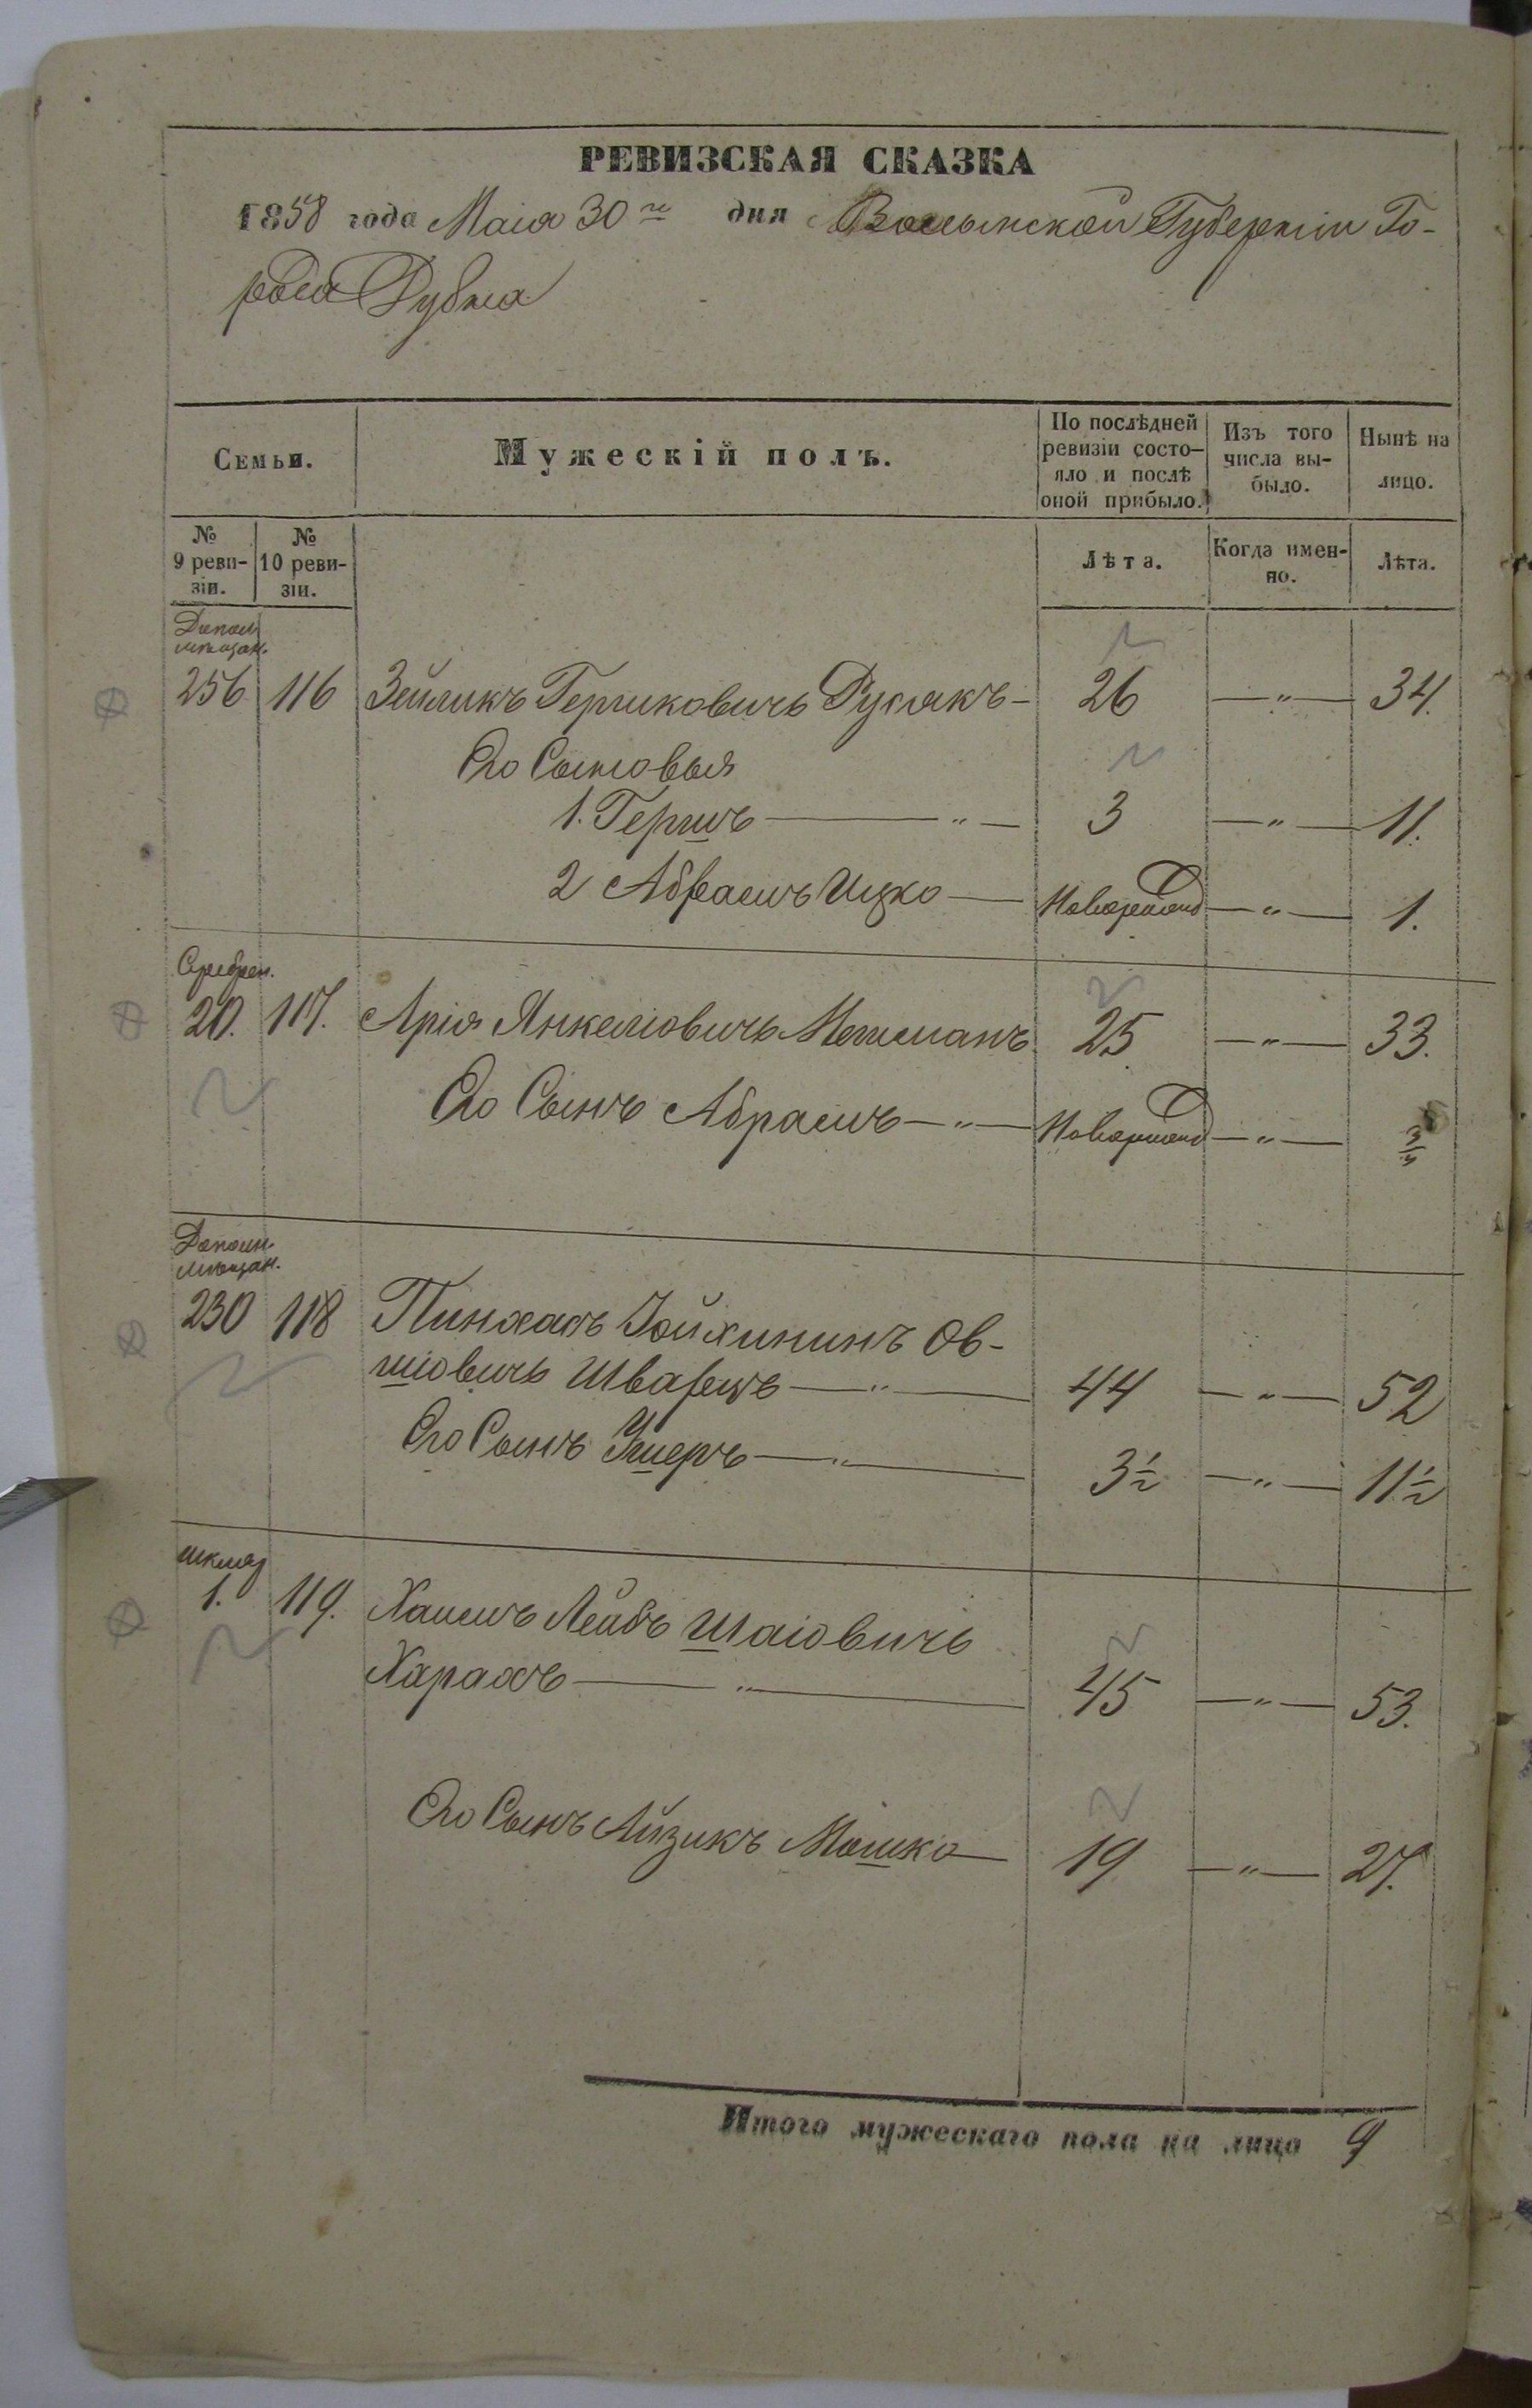 РЕВИЗСКАЯ СКАЗКА
1858 года Маія 30го дня Волынской Губерніи Го-
рода Дубна
Семьи.
Мужескій полъ.
По послѣдней ревизіи состо-яло и послѣ оной прибыло.
Изъ того числа вы-было.
Нынѣ на лицо.
№ 9 реви-зіи.
№ 10 реви-зіи.
Лѣта.
Когда имен-но.
Лѣта.
Дополн
мѣщан.
256 116 Зейликъ Гершковичъ Русакъ — 26 — „ — 34.
Его Сыновья
1. Гершъ — „ — 3 — „ — 11.
2 Абрамъ Ицко — Новорожд — „ — 1.
Серебрен.
20. 117. Арія Янкеліовичъ 25 — „ — 33.
Его Сынъ Абрамъ — „ — Новорожд — „ — 3/4
Дополн.
мѣщан.
230 118 Пинхасъ Іойхининъ Ов-
шіовичъ Шварцъ — „ — 44 — „ — 52
Его Сынъ Ушеръ — „ — 3½ — „ — 11½
шкляр
1. 119. Хаимъ Лейбъ Шаіовичъ
Харахъ — „ — 45 — „ — 53.
Его Сынъ Айзикъ Мошко — 19 — „ — 27.
Итого мужескаго пола на лицо 9